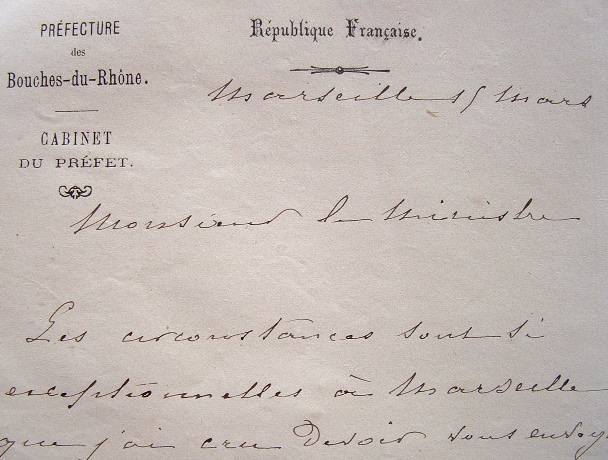 PRÉFECTURE
des
Bouches-du-Rhône.
CABINET
DU PRÉFET.
République Française.
Marseille 15 Mars
Monsieur le Ministre
Les circonstances sont si
exceptionnelles à Marseille
que j'ai cru devoir vous envoy